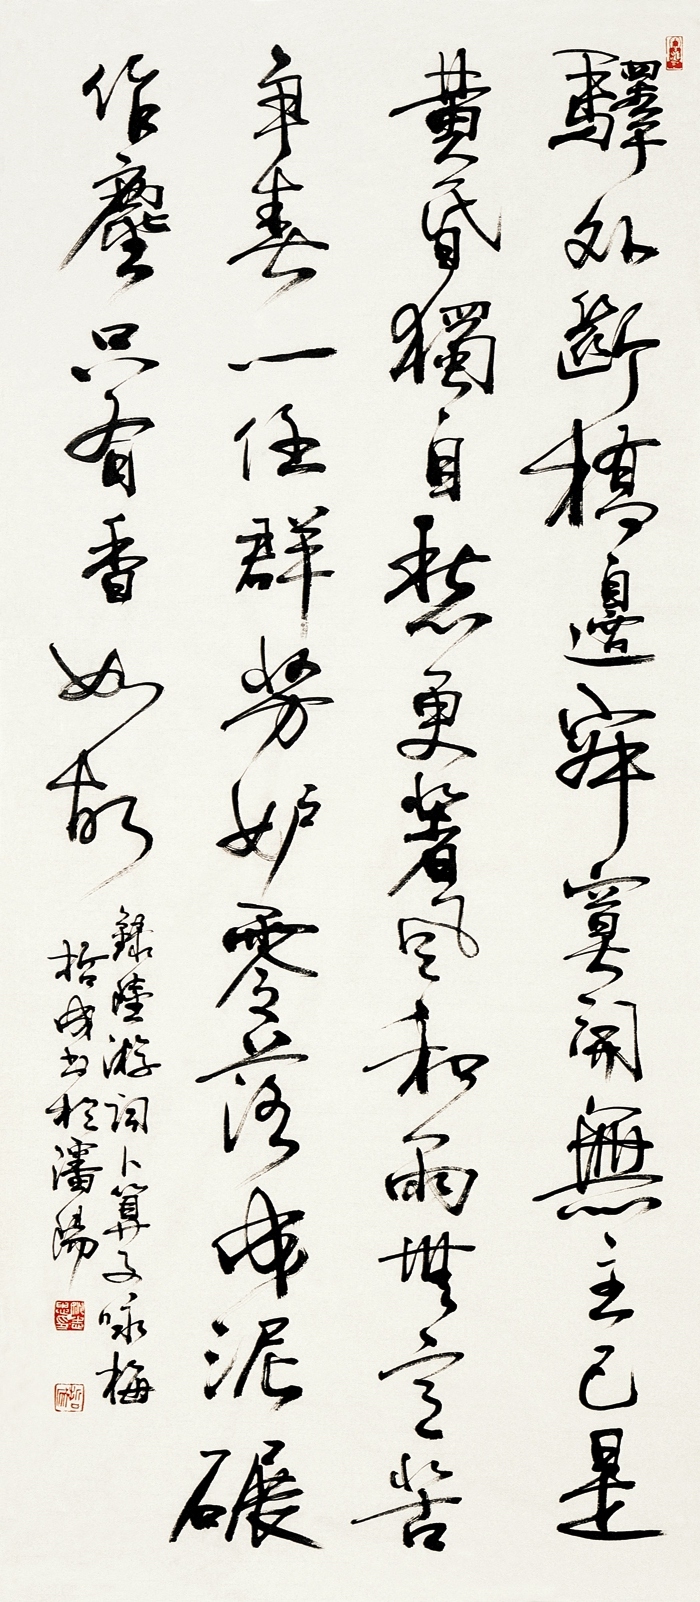 驛外斷橋邊寂寞開無主已是
黄昏獨自愁更著風和雨無意苦
争春一任群芳妒零落成泥碾
作塵只有香如故
錄陸游詞卜算子咏梅
哲成书於瀋陽